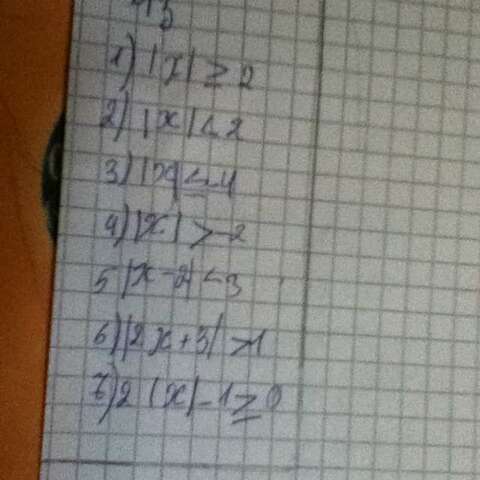 1) |x| ≥ 2
2) |x| < 2
3) |x| ≤ -4
4) |x| > -2
5 |x-2| < 3
6) |2x+3| > 1
7) 2|x|-1 ≥ 0